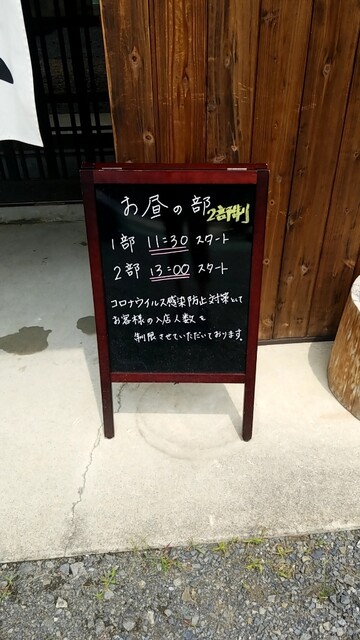 お昼の部 2部制
1部 11:30 スタート
2部 13:00 スタート
コロナウイルス感染防止対策として
お客様の入店人数を
制限させていただいております。